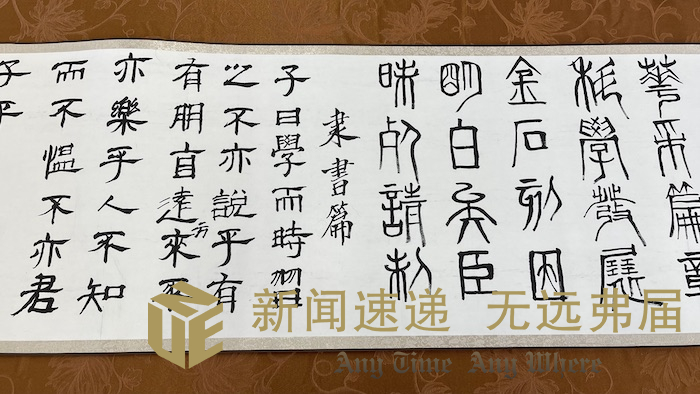 華采篇章
科學發展
金石刻因
明白矣臣
昧死請制
隶書篇
子曰學而時習
之不亦說乎有
有朋自遠方來不
亦樂乎人不知
而不慍不亦君
子乎
新闻速递 无远弗届
Any Time Any Where